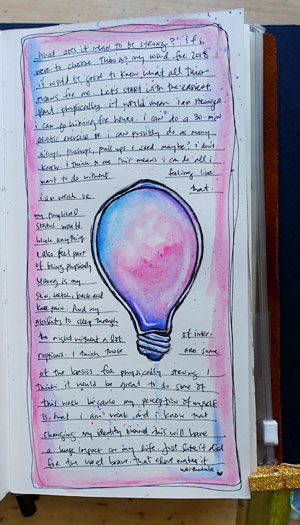 What does it mean to be stronger? If i
were to choose this as my word for 2018
it would be good to know what all this
means for me. Let's start with the easiest
part physically. it would mean i am stronger
i can go hiking for hours. i can do a 30-min
exercise i can possibly do as many
situps, pushups, pull ups i used maybe? i don't
know. i think to me this means i can do all i
want to do without feeling like
i am weak or that.
my physical
status would
block anything
i also feel part
of being physically
strong is my
skin, back and
knee pain. And my
ability to sleep through
the night without a lot of inter-
ruptions. I think those are some
of the basics for physically strong. I
think it would be great to do some of
this work because my perception of myself
is that i am weak and i know that
changing my identity around this will have
a huge impact on my life. Just like it did
for the word brave. that alone makes it
worthwhile